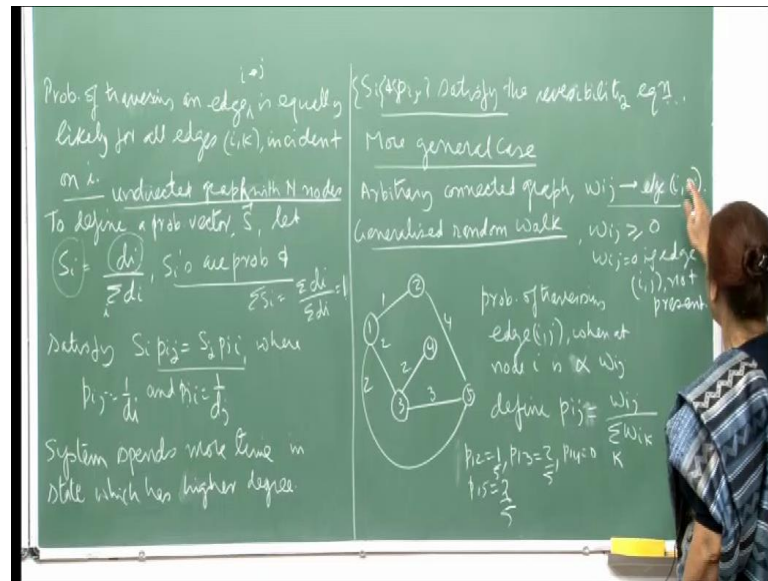 i→j
Prob. of traversing an edge, is equally
likely for all edges (i,k), incident
on i. undirected graph with N nodes
To define a prob vector, S, let
Si = di / Σi di, Si's are prob &
ΣSi = Σdi / Σdi = 1
Satisfy Si pij = Sj pji, where
pij = 1/di and pji = 1/dj
System spends more time in
state which has higher degree.
{Si & pij} satisfy the reversibility eqn.
More general case
Arbitrary connected graph, wij → edge (i,j).
Generalized random walk, wij ≥ 0
wij = 0 if edge
(i,j), not
present
1 2 3 4 5
1 2 2 2 3 4
prob. of traversing
edge (i,j), when at
node i is ∝ wij
define pij = wij / Σk wik
p12 = 1/5, p13 = 2/5, p14 = 0
p15 = 2/5